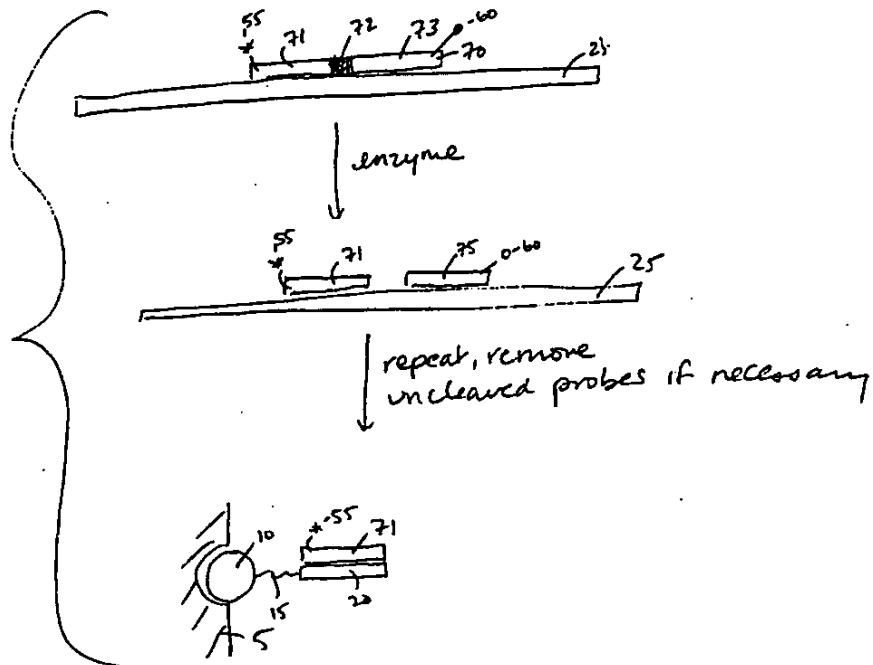 55 71 72 73 -60
70 25
enzyme
55 71 75 0-60
25
repeat, remove
uncleaved probes if necessary
10 *-55 71
15 20
5